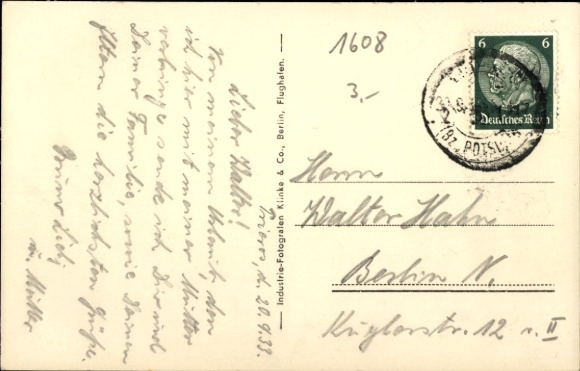 Prieros, d. 20.9.33.
Lieber Walter!
Von meinem Urlaub, den
ich hier mit meiner Mutter
verbringe sende ich Dir und
Deiner Familie, sowie Deinen
Eltern die herzlichsten Grüße.
u. Mutter
Industrie-Fotografen Klinke & Co., Berlin, Flughafen.
1608
3.-
6 6
Deutsches Reich
Herrn
Walter Hahn
Berlin N.
Kuglerstr. 12 v. II